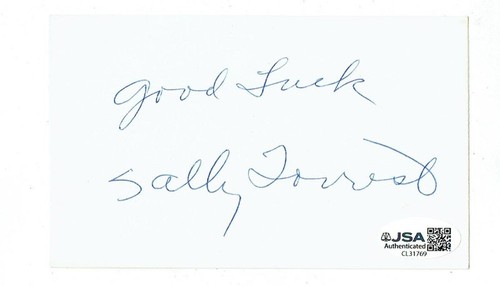 Good Luck
Sally Forrest
JSA
Authenticated
CL31769